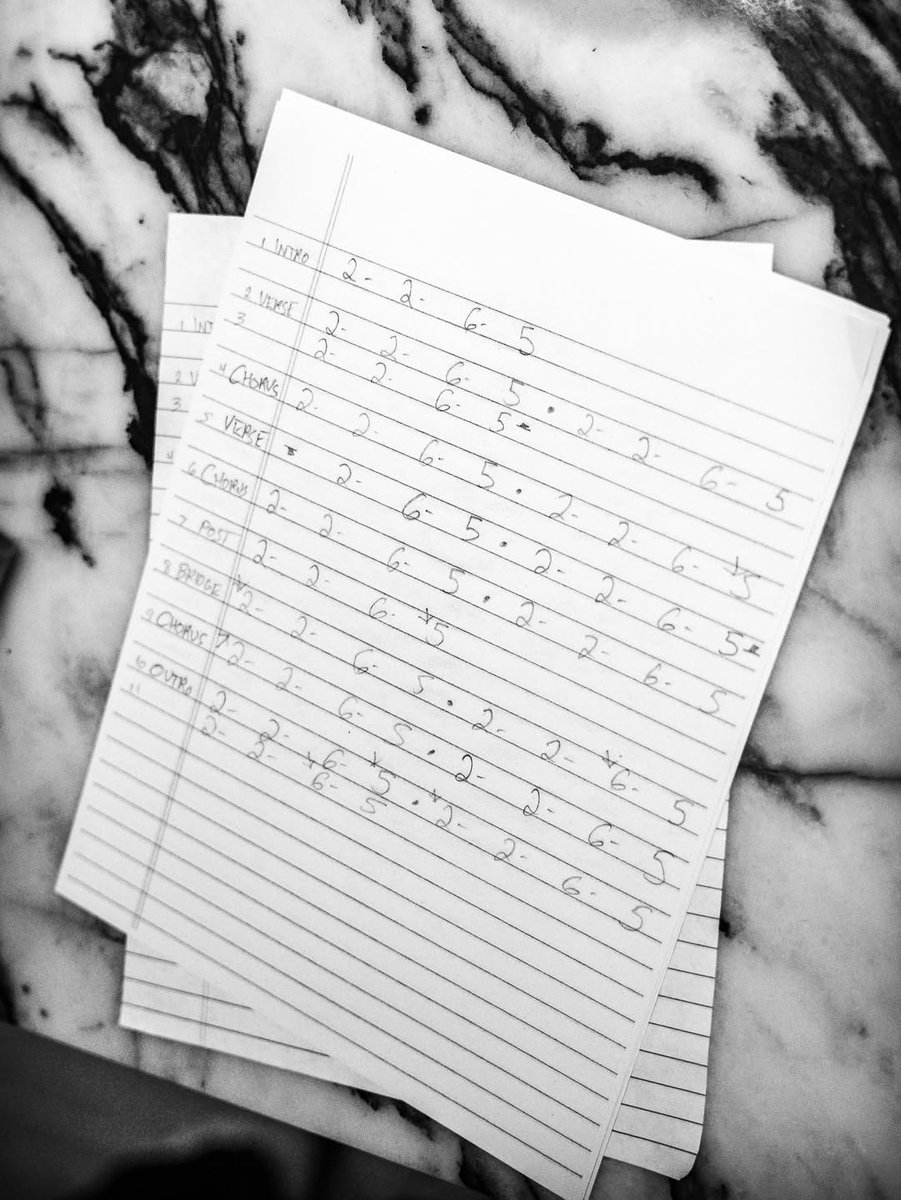 1 INTRO 2- 2- 6- 5
2 VERSE 2- 2- 6- 5 . 2- 2- 6- 5
3 2- 2- 6- 5-
4 CHORUS 2- 2- 6- 5 . 2- 2- 6- 5
5 VERSE - 2- 6- 5 . 2- 2- 6- 5-
6 CHORUS 2- 2- 6- 5 . 2- 2- 6- 5
7 POST 2- 2- 6- 5
8 BRIDGE 2- 2- 6- 5 . 2- 2- 6- 5
9 CHORUS 2- 2- 6- 5 . 2- 2- 6- 5
10 OUTRO 2- 2- 6- 5 . 2- 2- 6- 5
11 2- 2- 6- 5
1 INT
2 V
3
4